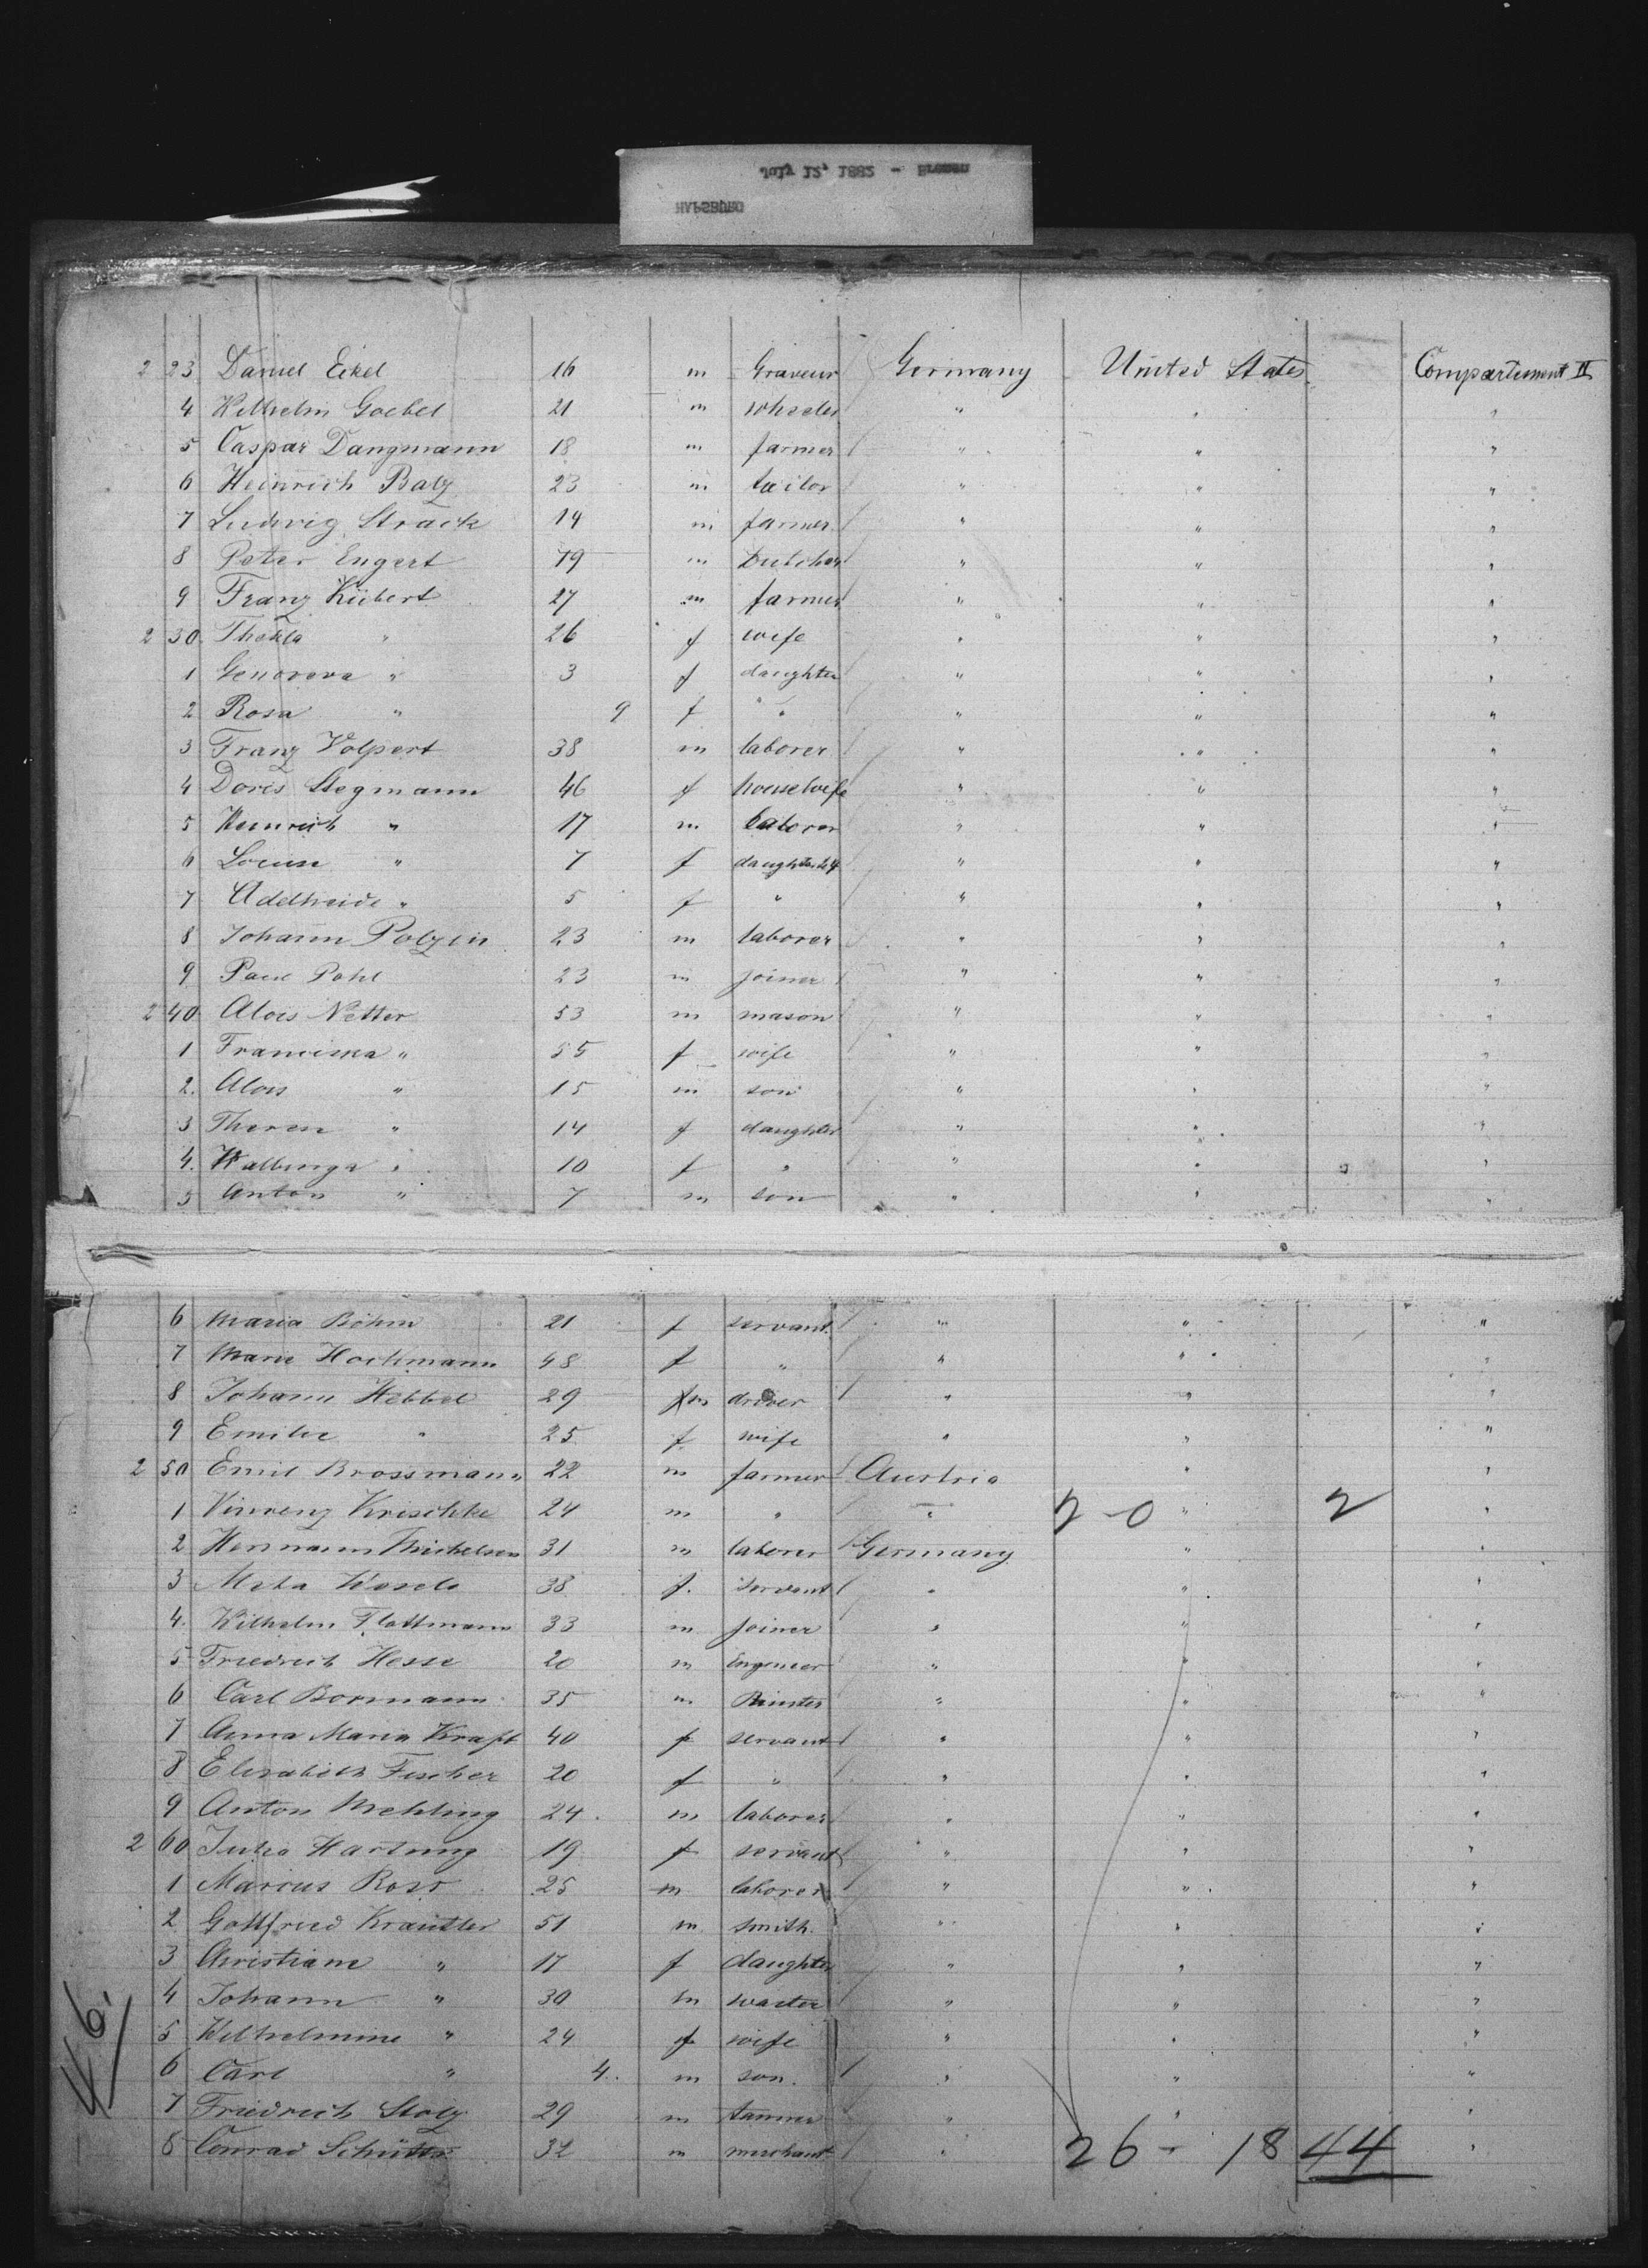 July 12, 1882 - Bremen
HAPSBURG
2 23 Daniel Eikel 16 m Graveur Germany United States Compartement II
4 Wilhelm Goebel 21 m " " "
5 Caspar Dangmann 18 m farmer " " "
6 Heinrich Balz 23 m tailor " " "
7 Ludwig Strack 14 m farmer " " "
8 Peter Engert 19 m Butcher " " "
9 Franz Kübert 27 m farmer " " "
2 30. Thekla " 26 f wife " " "
1 Genoveva " 3 f daughter " " "
2 Rosa " 9 f " " " "
3 Franz Volpert 38 m laborer " " "
4 Doris Stegmann 46 f housewife " " "
5 Heinrich " 17 m laborer " " "
6 Louise " 7 f daughter " " "
7 Adelheide " 5 f " " " "
8 Johann Polzin 23 m laborer " " "
9 Paul Pohl 23 m joiner " " "
2 40 Alois Netter 53 m mason " " "
1 Franciska " 55 f wife " " "
2. Alois " 15 m son " " "
3 Therese " 14 f daughter " " "
4. Walburga " 10 f " " " "
5 Anton " 7 m son " " "
6 Maria Böhm 21 f servant " " "
7 Marie Hochmann 48 f " " " "
8 Johann Hebbel 29 m driver " " "
9 Emilie " 25 f wife " " "
2 50 Emil Brossmann 22 m farmer Austria " "
1 Vincenz Krischke 24 m " " 2-0 " 2 "
2 Hermann Michelsen 31 m laborer Germany " "
3 Meta 38 f. servant " " "
4. Wilhelm Flottmann 33 m joiner " " "
5 Friedrich Hesse 20 m Engineer " " "
6 Carl Bormann 35 m " " "
7 Anna Maria Kraft 40 f servant " " "
8 Elisabeth Fischer 20 f " " " "
9 Anton Mehling 24. m laborer " " "
2 60 Julia Hartung 19 f servant " " "
1 Marcus Ross 25 m laborer " " "
2 Gottfried Krautler 51 m smith. " " "
3 Christiane " 17 f daughter " " "
4 Johann " 30 m " " "
5 Wilhelmine " 24 f wife " " "
6 Carl " 4. m son. " " "
7 Friedrich Stolz 29 m tanner " " "
8 Conrad Schütte 32 m merchant " 26 - 18 44 "